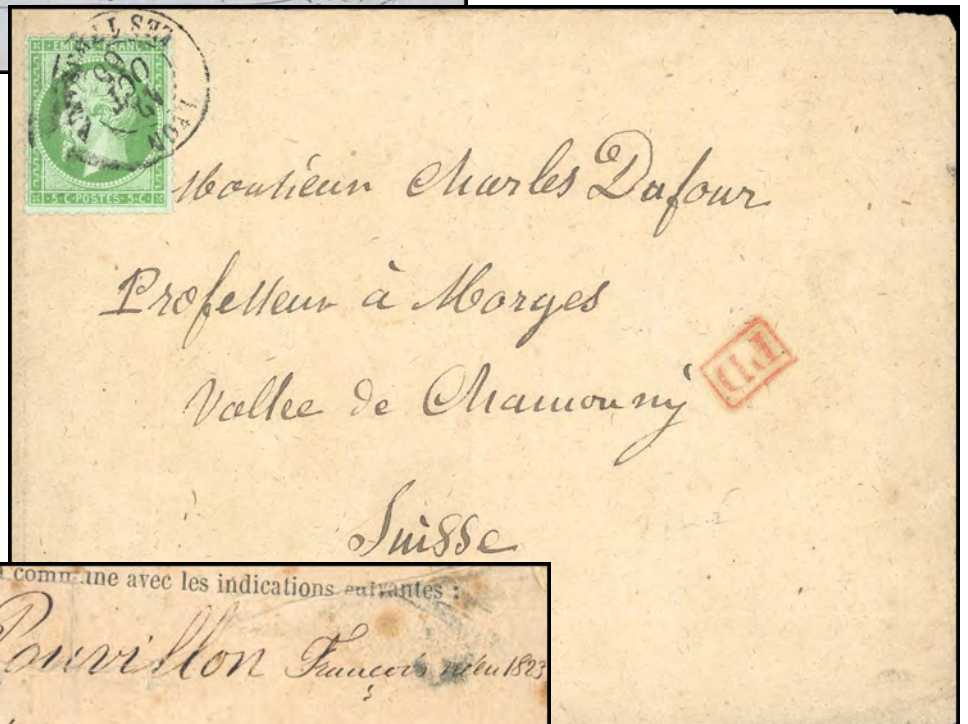 EMPIRE FRANC
5·C·POSTES·5·C
LYON
Monsieur Charles Dufour
Professeur à Morges
PD
Vallée de Chamouny
Suisse
commune avec les indications suivantes :
Pouvillon François né en 1823